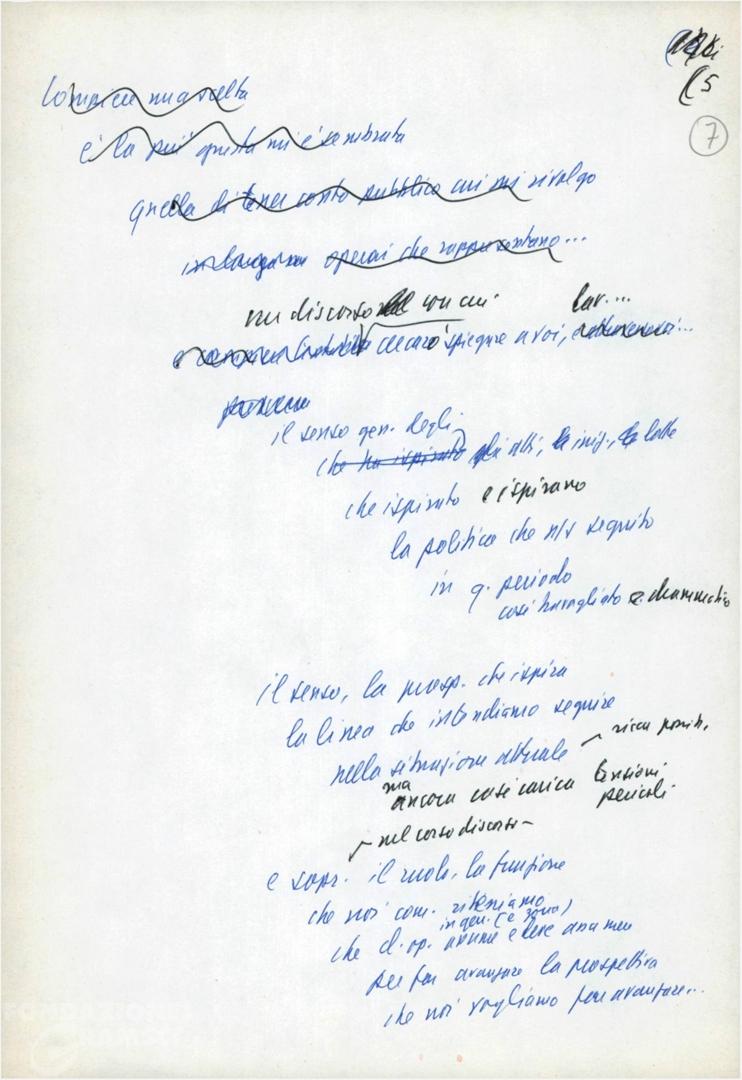 (5
7
è la più giusta mi è sembrata
quella di tener conto pubblico cui mi rivolgo
operai che rappresentano...
un discorso con cui lav....
cercarò spiegare a voi,
il senso gen. degli
che ha ispirato gli atti, le iniz., le lotte
che ispirato e ispirano
la politica che n/s seguito
in q. periodo
così travagliato e drammatico
il senso, la prosp. che ispira
la linea che intendiamo seguire
nella situazione attuale
ma
ancora così carica tensioni
pericoli
nel corso discorso
e sopr. il ruolo, la funzione
che noi com. riteniamo
in gen. (e zona)
che cl. op. assume e deve assumere
per far avanzare la prospettiva
che noi vogliamo far avanzare...
FONDAZIONE
GRAMSCI